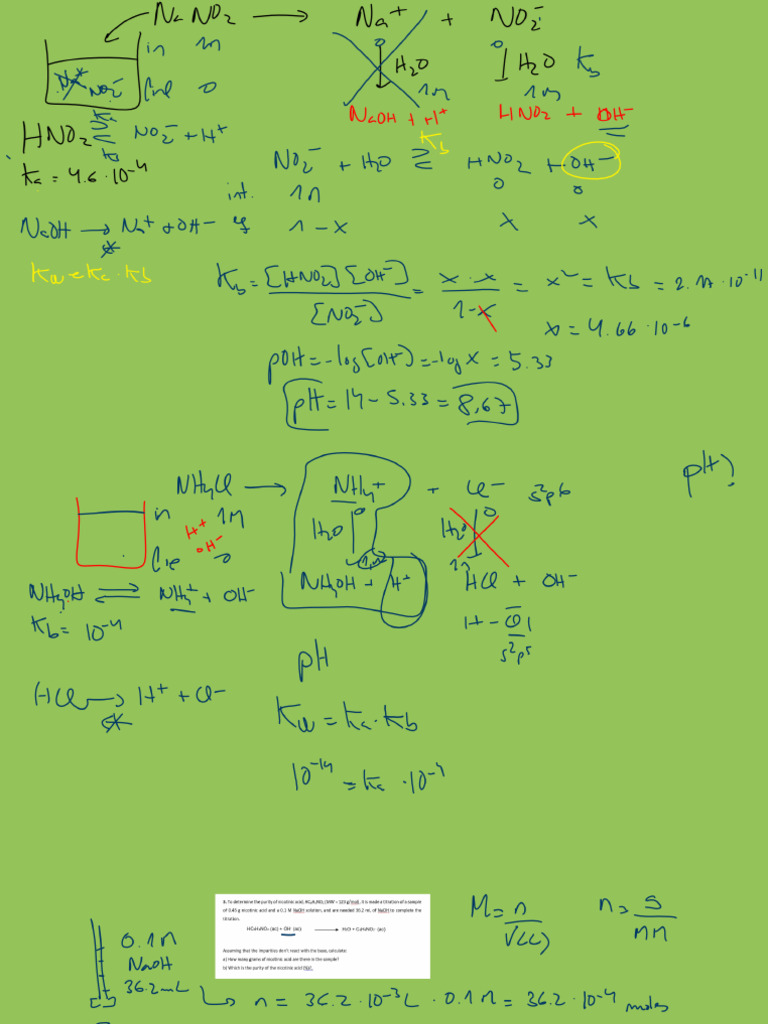 NaNO₂ ⟶ Na⁺ + NO₂⁻
in 1M
Na⁺ NO₂⁻
0
H₂O
H₂O Kb
1M
1M
NaOH + H⁺
HNO₂ + OH⁻
HNO₂ ⇌ NO₂⁻ + H⁺
Ka
Ka = 4.6·10⁻⁴
Kb
NO₂⁻ + H₂O ⇌ HNO₂ + OH⁻
int. 1M 0 0
NaOH ⟶ Na⁺ + OH⁻
1-x x x
Kw = Ka·Kb
Kb = [HNO₂][OH⁻] / [NO₂⁻] = x·x / 1-x = x² = Kb = 2.17·10⁻¹¹
x = 4.66·10⁻⁶
pOH = -log[OH⁻] = -log x = 5.33
pH = 14 - 5.33 = 8,67
pH?
NH₄Cl ⟶ NH₄⁺ + Cl⁻ s²p⁶
in 1M
H⁺
OH⁻
0
H₂O
H₂O
NH₄OH + H⁺
HCl + OH⁻
NH₄OH ⇌ NH₄⁺ + OH⁻
Kb = 10⁻⁴
H - Cl
s²p⁵
pH
HCl ⟶ H⁺ + Cl⁻
Kw = Ka·Kb
10⁻¹⁴ = Ka·10⁻⁴
8. To determine the purity of nicotinic acid, HC₆H₄NO₂ (MW = 123 g/mol), it is made a titration of a sample
of 0.45 g nicotinic acid and a 0.1 M NaOH solution, and are needed 36.2 mL of NaOH to complete the
titration.
HC₆H₄NO₂ (ac) + OH⁻ (ac) ⟶ H₂O + C₆H₄NO₂⁻ (ac)
Assuming that the impurities don't react with the base, calculate:
a) How many grams of nicotinic acid are there in the sample?
b) Which is the purity of the nicotinic acid (%)?
M = n / V(L)
n = g / MM
0.1M
NaOH
36.2mL
n = 36.2·10⁻³L · 0.1M = 36.2·10⁻⁴ moles